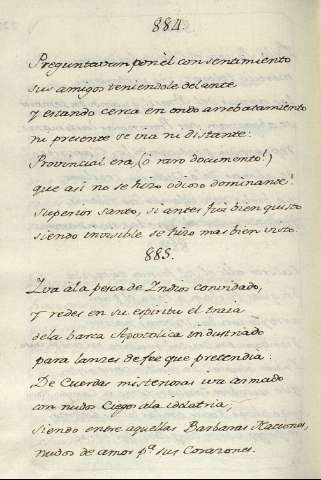 884.
Preguntavan por el con sentimiento
sus amigos teniendole delante
y estando cerca en ondo arrebatamiento
ni presente se via ni distante:
Provincial era, (ó raro documento!)
que asi no se hizo odioso dominante!
superior santo, si antes fué bien quisto
siendo invisible se hizo mas bien visto.
885.
Iva á la pesca de Indios convidado,
y redes en su espiritu el traia
de la barca Apostolica industriado
para lanzes de fee que pretendia:
De Cuerdas misteriosas iva armado
con nudos Ciegos ala idolatria;
siendo entre aquellas Barbaras Naciones,
nudos de amor pª sus Corazones.